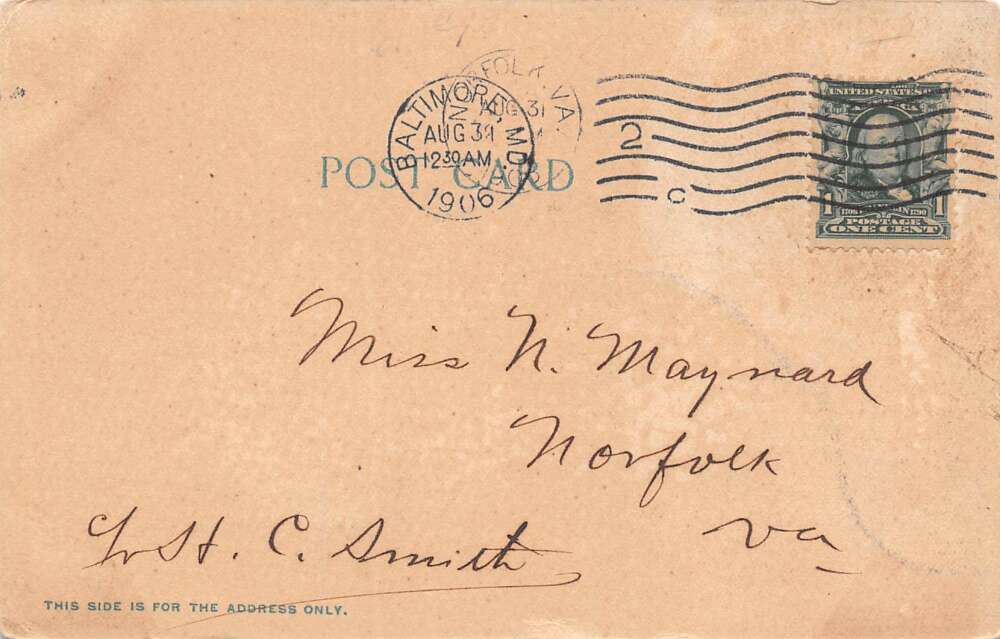 FOLK, VA.
AUG 31
BALTIMORE, MD.
AUG 31
12 30 AM
1906
2
C
UNITED STATES
1
1706 FRANKLIN 1790
1
POSTAGE
ONE CENT
POST CARD
Miss N. Maynard
Norfolk
Va
H. C. Smith
THIS SIDE IS FOR THE ADDRESS ONLY.